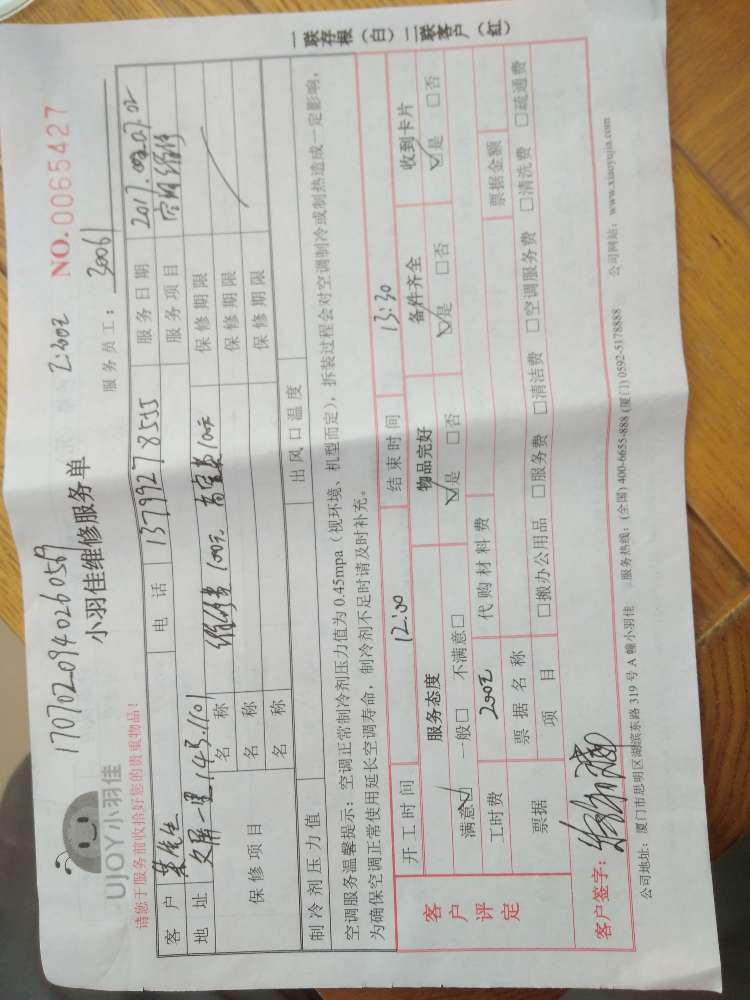 1707020940260569
NO.0065427
UJOY小羽佳
小羽佳维修服务单
请您于服务前收拾好您的贵重物品!
服务员工: 30061
客户 电话 13799278555 服务日期 2017.07.02
地址 文屏一里145.1101 服务项目 空调维修
保修项目 名称 维修费100元 高空费100元 保修期限
名称 保修期限
名称 保修期限
制冷剂压力值 出风口温度
空调服务温馨提示:空调正常制冷剂压力值为0.45mpa(视环境、机型而定),拆装过程会对空调制冷或制热造成一定影响,
为确保空调正常使用延长空调寿命,制冷剂不足时请及时补充。
客户评定
开工时间 12:00 结束时间 13:30
服务态度 物品完好 备件齐全 收到卡片
满意☑ 一般□ 不满意□ ☑是 □否 ☑是 □否 ☑是 □否
工时费 200元 代购材料费
票据 票据名称 票据金额
项目 □搬办公用品 □服务费 □清洁费 □空调服务费 □清洗费 □疏通费
客户签字:
公司地址:厦门市思明区湖滨东路319号A幢小羽佳 服务热线:(全国)400-6655-888 (厦门)0592-5178888 公司网站:www.xiaoyujia.com
一联存根(白)二联客户(红)